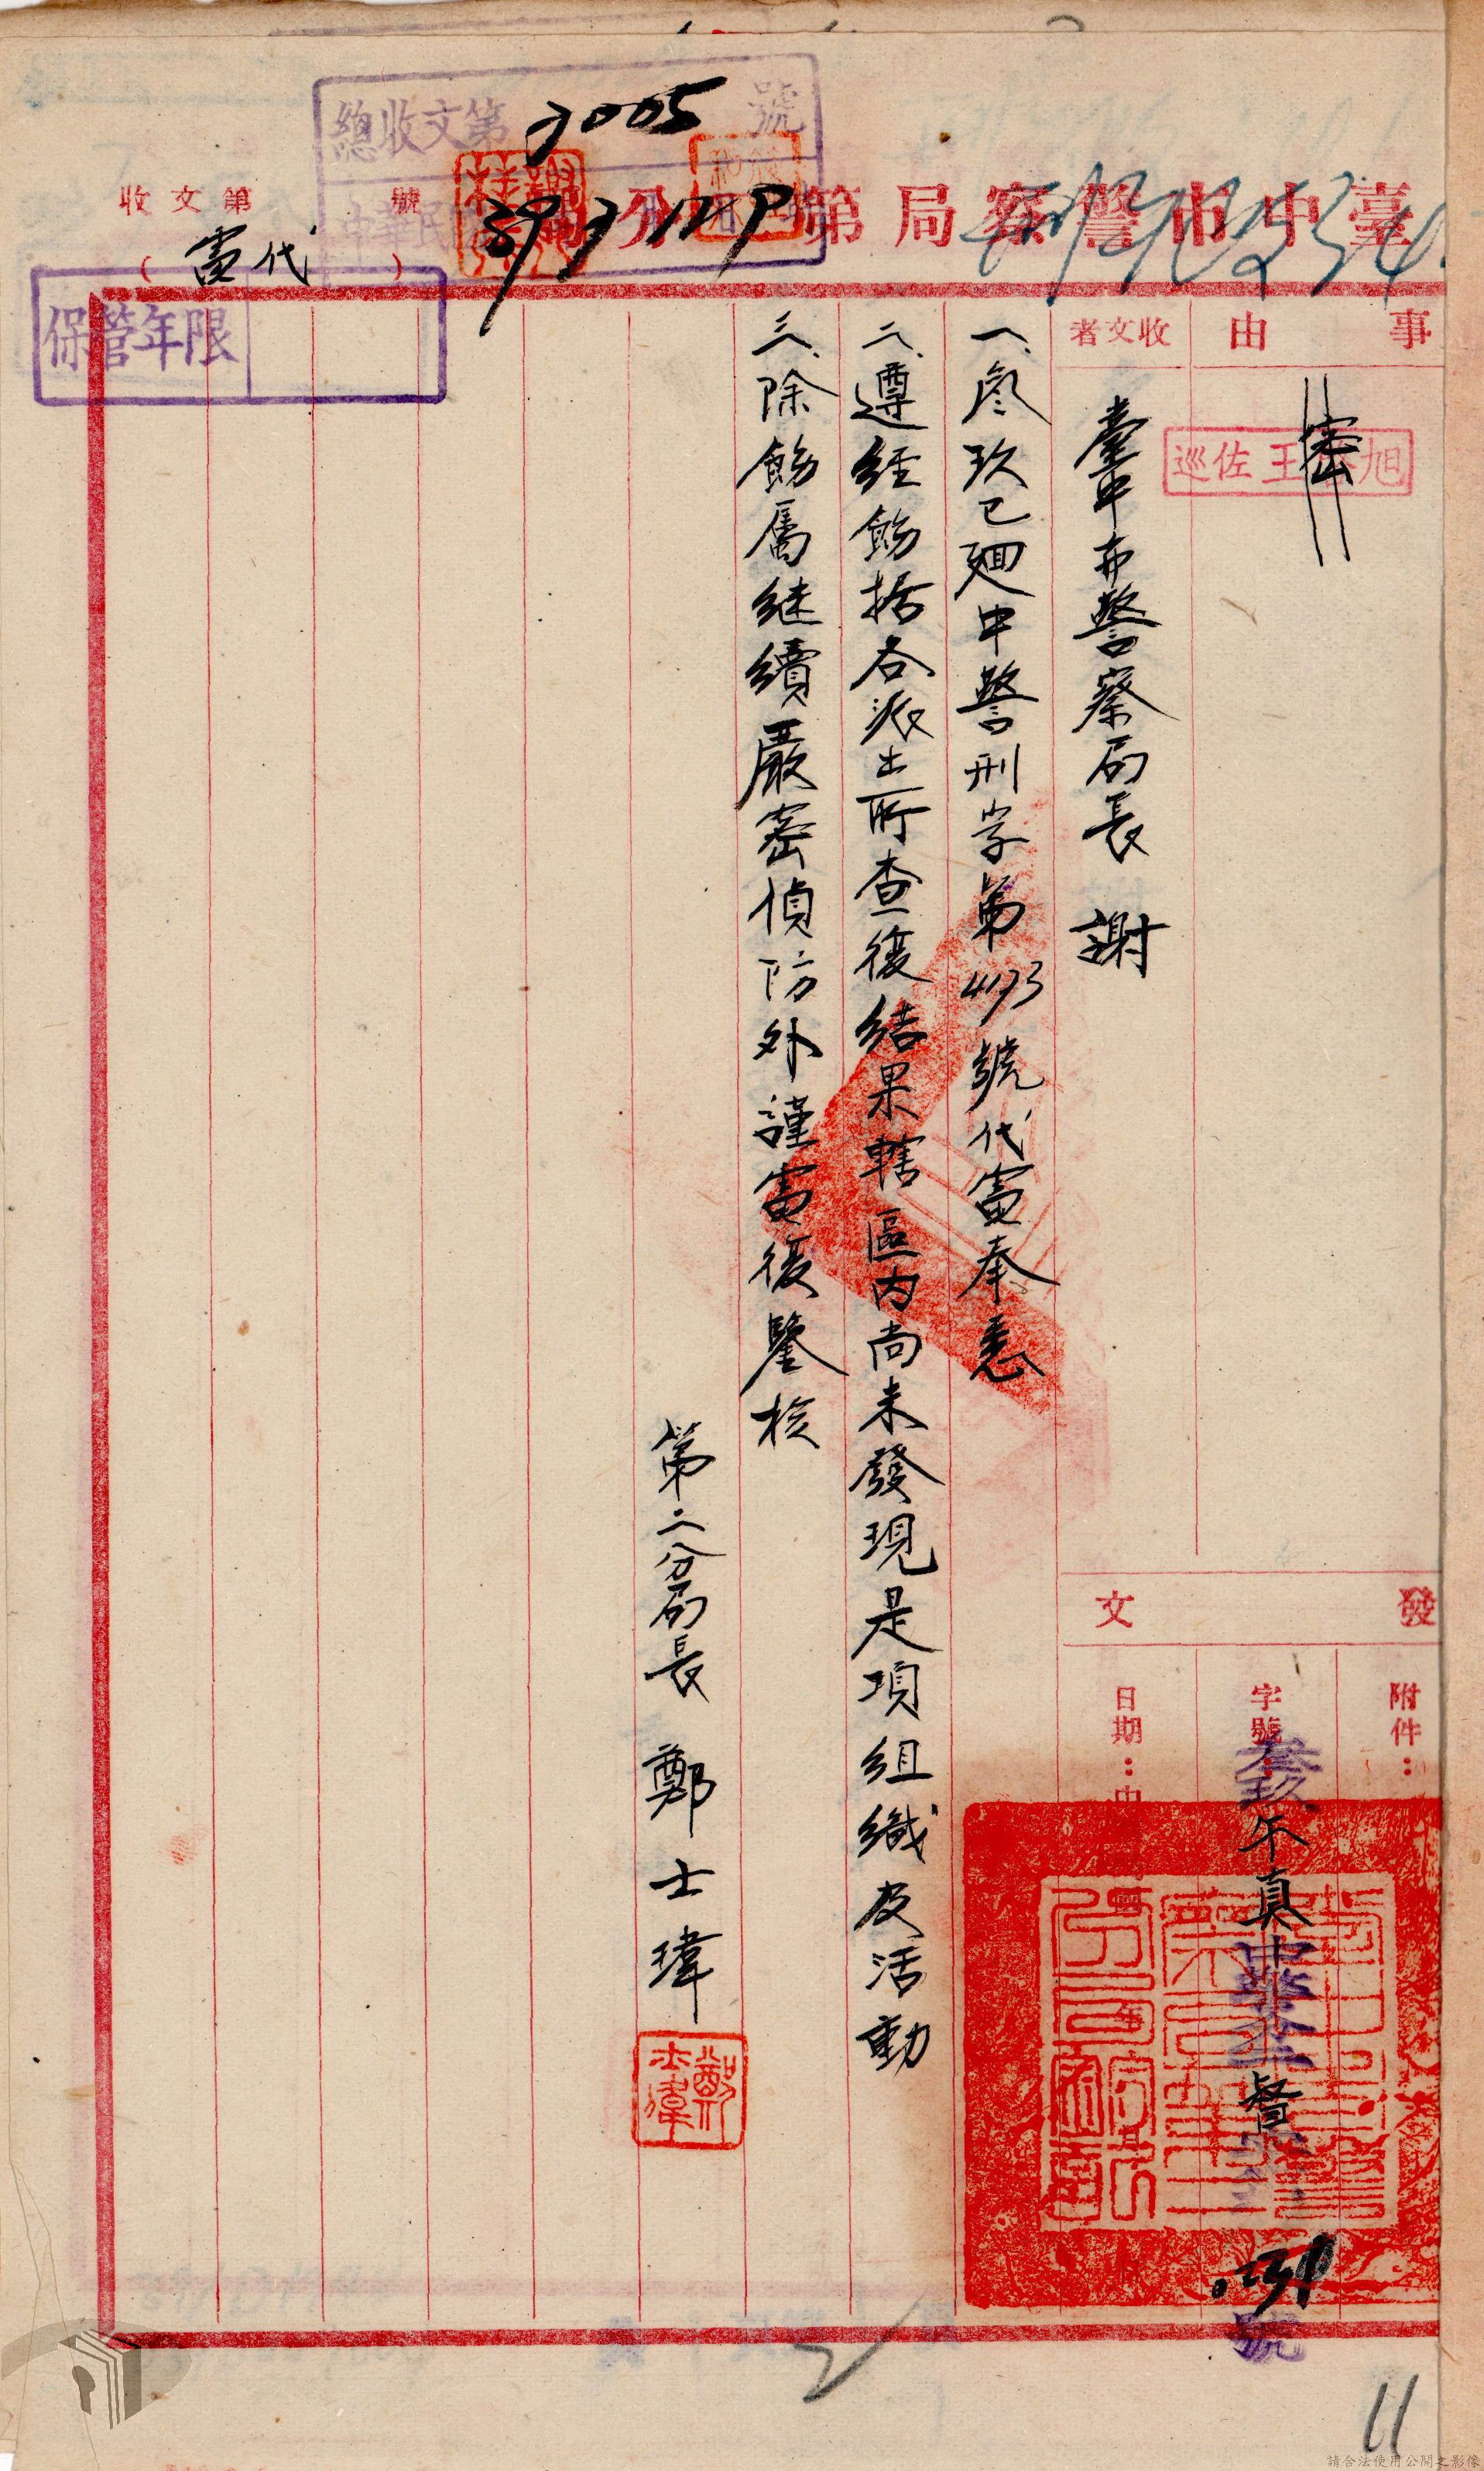 臺中市警察局第二分局
(代電)
收文第 號
總收文第3005號
39 7 12
保管年限
事由
密
收文者
巡佐王
臺中市警察局長 謝
發文
附件：
字號：
叁玖午真中警二督
號
日期：中
一、彥玖巳廻中警刑字第4193號代電奉悉
二、遵經飭據各派出所查復結果轄區內尚未發現是項組織及活動
三、除飭屬继續嚴密偵防外謹電復鑒核
第二分局長 鄭士瑋
鄭士瑋
11
請合法使用公開之影像